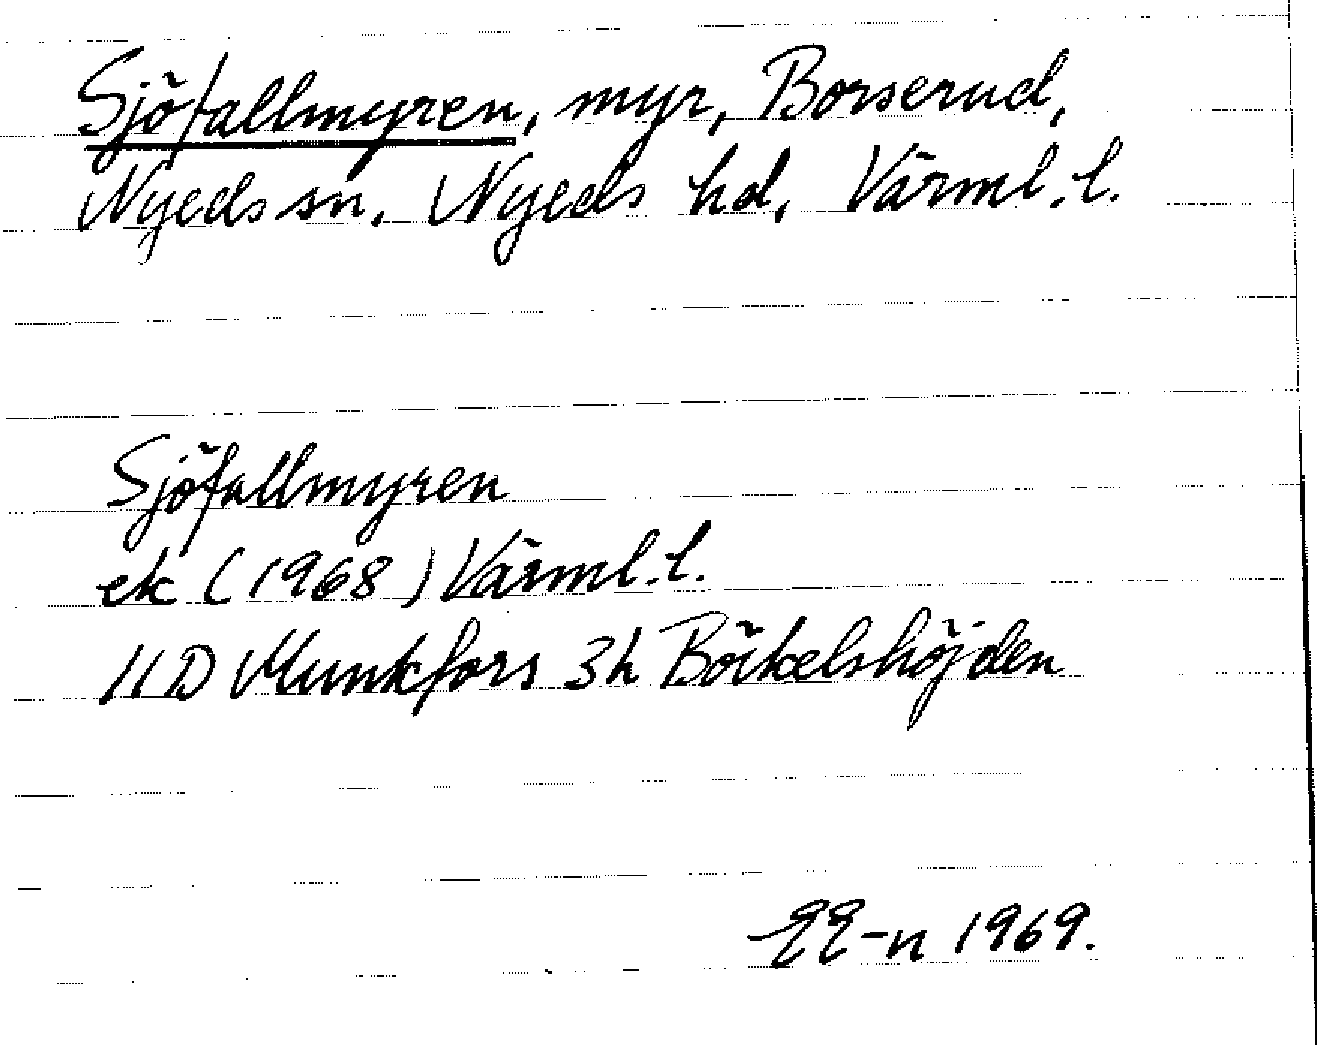 Sjöfallmyren, myr, Borserud,
Nyeds sn. Nyeds hd, Värml. l.
Sjöfallmyren
ek (1968) Värml. l.
11D Munkfors 3h Bökelshöjden
1969.